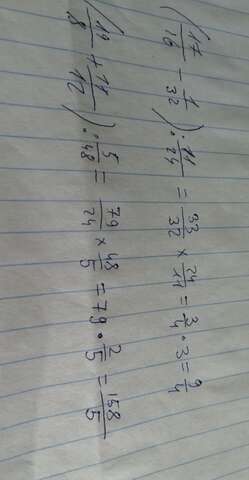 (17/16 - 1/32) : 11/24 = 33/32 × 24/11 = 3/4 · 3 = 9/4
(19/8 + 11/12) : 5/48 = 79/24 × 48/5 = 79 · 2/5 = 158/5